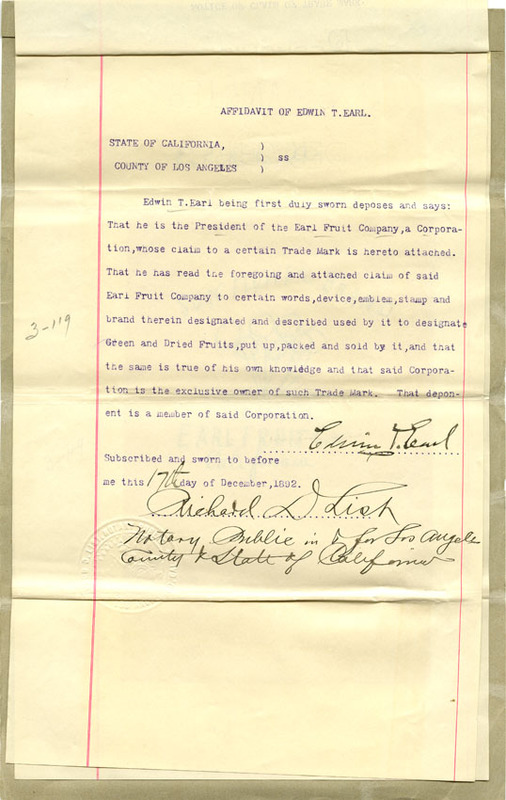 AFFIDAVIT OF EDWIN T.EARL.
STATE OF CALIFORNIA, )
) ss
COUNTY OF LOS ANGELES )
Edwin T.Earl being first duly sworn deposes and says:
That he is the President of the Earl Fruit Company,a Corpora-
tion,whose claim to a certain Trade Mark is hereto attached.
That he has read the foregoing and attached claim of said
Earl Fruit Company to certain words,device,emblem,stamp and
brand therein designated and described used by it to designate
Green and Dried Fruits,put up,packed and sold by it,and that
the same is true of his own knowledge and that said Corpora-
tion is the exclusive owner of such Trade Mark. That depon-
ent is a member of said Corporation.
3-119
Edwin T. Earl
Subscribed and sworn to before
me this 17th day of December,1892.
Richard D List
Notary Public in & for Los Angeles
County & State of California